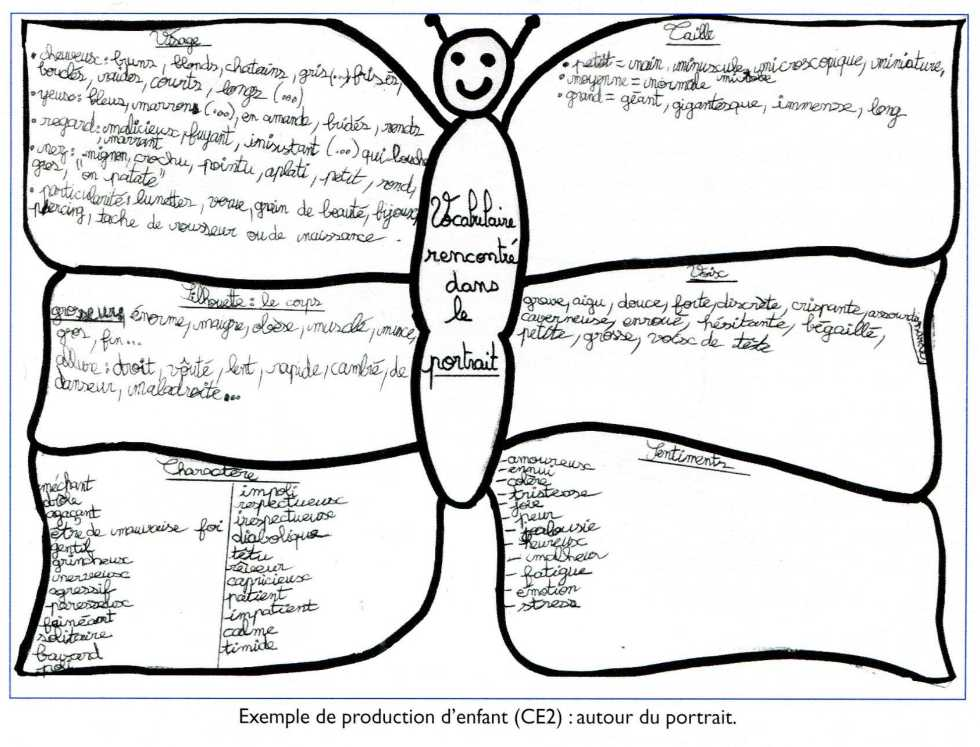 Visage
• cheveux : bruns, blonds, chatains, gris (...) frisés,
bouclés, raides, courts, longs (...)
• yeux : bleus, marrons (...), en amande, bridés, ronds
• regard : malicieux, fuyant, insistant (...) qui louche
, marrant
• nez : mignon, crochu, pointu, aplati, petit, rond,
gros, "en patate"
• particularités : lunettes, verue, grain de beauté, bijoux,
piercing, tache de rousseur ou de naissance.
Taille
• petit = nain, minuscule, microscopique, miniature,
• moyenne = normale
• grand = géant, gigantesque, immense, long
Vocabulaire
rencontré
dans
le
portrait
Silhouette : le corps
grosseur énorme, maigre, obèse, musclé, mince,
gros, fin...
allure : droit, vôuté, lent, rapide, cambré, de
danseur, maladroite...
Voix
grave, aigu, douce, forte, discrète, crispante,
caverneuse, enroué, hésitante, bégaillé,
petite, grosse, voix de tête
Charactère
méchant
drôle
agaçant
être de mauvaise foi
gentil
grincheux
nerveux
agressif
paresseux
fainéant
solitaire
bavard
poli
impoli
respectueux
irespectueux
diabolique
têtu
rêveur
capricieux
patient
impatient
calme
timide
Sentiments
- amoureux
- ennui
- colère
- tristesse
- joie
- peur
- jealousie
- heureux
- malheur
- fatigue
- émotion
- stress
Exemple de production d'enfant (CE2) : autour du portrait.